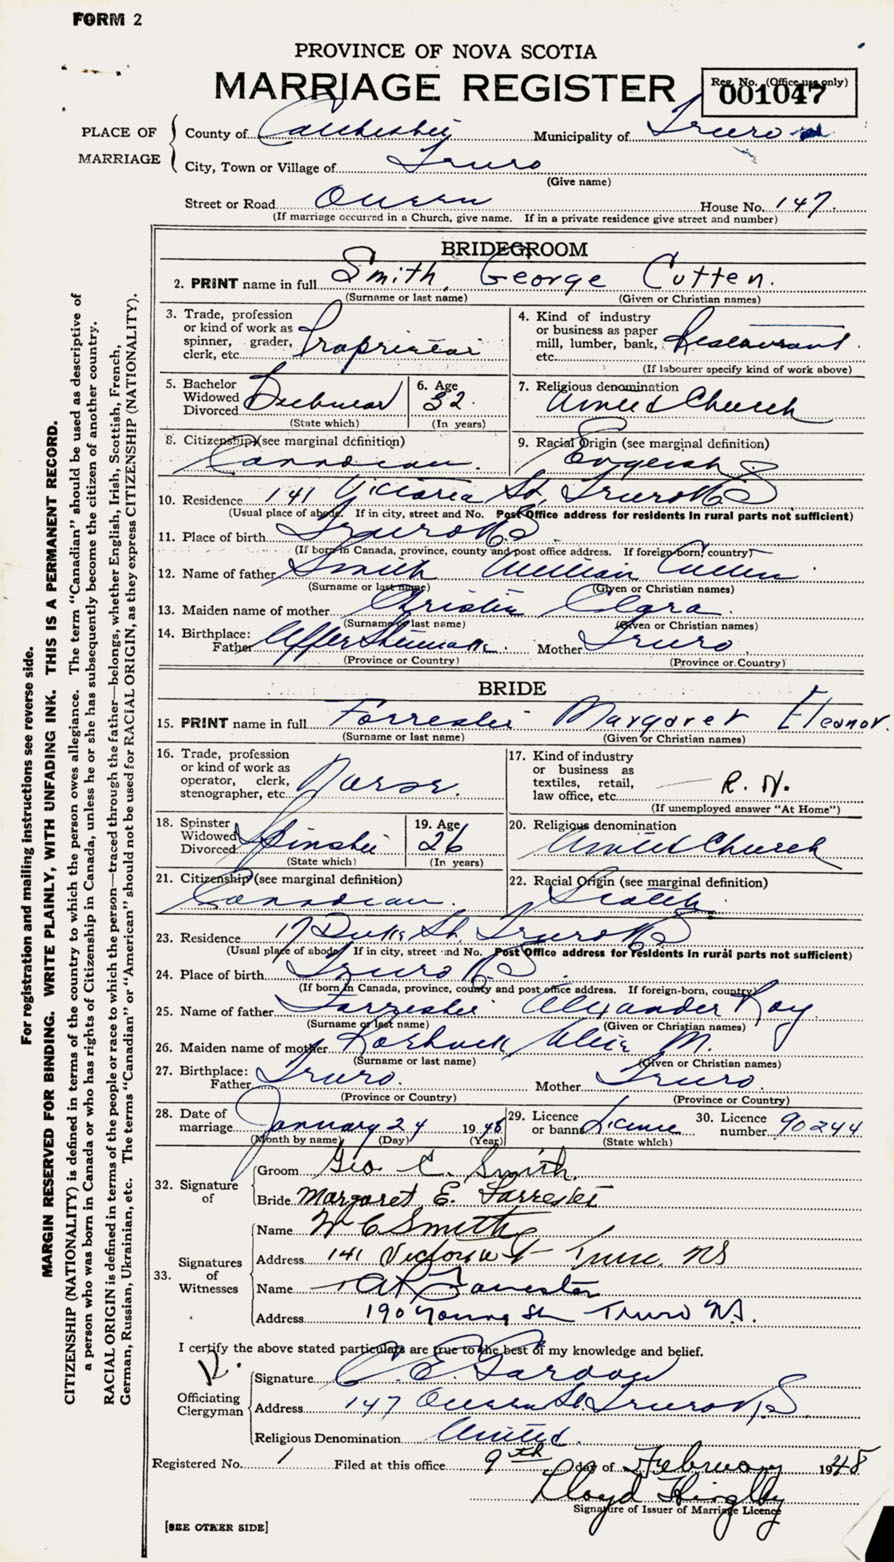 FORM 2
PROVINCE OF NOVA SCOTIA
MARRIAGE REGISTER
Reg. No. (Office use only)
001047
PLACE OF MARRIAGE
County of Colchester Municipality of Truro
City, Town or Village of Truro
(Give name)
Street or Road Queen House No. 147.
(If marriage occurred in a Church, give name. If in a private residence give street and number)
BRIDEGROOM
2. PRINT name in full Smith, George Cutten.
(Surname or last name) (Given or Christian names)
3. Trade, profession or kind of work as spinner, grader, clerk, etc. Proprietor
4. Kind of industry or business as paper mill, lumber, bank, etc. Restaurant.
(If labourer specify kind of work above)
5. Bachelor Widowed Divorced Bachelor
(State which)
6. Age 32
(In years)
7. Religious denomination United Church
8. Citizenship (see marginal definition) Canadian.
9. Racial Origin (see marginal definition) English
10. Residence 141 Victoria St. Truro NS
(Usual place of abode. If in city, street and No. Post Office address for residents in rural parts not sufficient)
11. Place of birth Truro NS
(If born in Canada, province, county and post office address. If foreign-born, country)
12. Name of father Smith William Cutten
(Surname or last name) (Given or Christian names)
13. Maiden name of mother Christie Clara.
(Surname or last name) (Given or Christian names)
14. Birthplace: Father Upper Stewiacke. Mother Truro
(Province or Country) (Province or Country)
BRIDE
15. PRINT name in full Forrester Margaret Eleanor.
(Surname or last name) (Given or Christian names)
16. Trade, profession or kind of work as operator, clerk, stenographer, etc. Nurse.
17. Kind of industry or business as textiles, retail, law office, etc. R. N.
(If unemployed answer "At Home")
18. Spinster Widowed Divorced Spinster
(State which)
19. Age 26
(In years)
20. Religious denomination United Church
21. Citizenship (see marginal definition) Canadian.
22. Racial Origin (see marginal definition) Scotch
23. Residence 17 Duke St. Truro NS
(Usual place of abode. If in city, street and No. Post Office address for residents in rural parts not sufficient)
24. Place of birth Truro NS
(If born in Canada, province, county and post office address. If foreign-born, country)
25. Name of father Forrester Alexander Roy
(Surname or last name) (Given or Christian names)
26. Maiden name of mother M.
(Surname or last name) (Given or Christian names)
27. Birthplace: Father Truro. Mother Truro.
(Province or Country) (Province or Country)
28. Date of marriage January 24 1948
(Month by name) (Day) (Year)
29. Licence or banns License
(State which)
30. Licence number 90244
32. Signature of
Groom Geo C. Smith.
Bride Margaret E. Forrester
33. Signatures of Witnesses
Name W C Smith
Address 141 Victoria St Truro, NS
Name A R Forrester
Address 190 Young St Truro N.S.
I certify the above stated particulars are true to the best of my knowledge and belief.
Officiating Clergyman
Signature C. E. Gordon
Address 147 Queen St. Truro N.S.
Religious Denomination United.
Registered No. 1 Filed at this office 9th day of February 1948
Lloyd
Signature of Issuer of Marriage Licence
[SEE OTHER SIDE]
For registration and mailing instructions see reverse side.
MARGIN RESERVED FOR BINDING. WRITE PLAINLY, WITH UNFADING INK. THIS IS A PERMANENT RECORD.
CITIZENSHIP (NATIONALITY) is defined in terms of the country to which the person owes allegiance. The term "Canadian" should be used as descriptive of
a person who was born in Canada or who has rights of Citizenship in Canada, unless he or she has subsequently become the citizen of another country.
RACIAL ORIGIN is defined in terms of the people or race to which the person—traced through the father—belongs, whether English, Irish, Scottish, French,
German, Russian, Ukrainian, etc. The terms "Canadian" or "American" should not be used for RACIAL ORIGIN, as they express CITIZENSHIP (NATIONALITY).